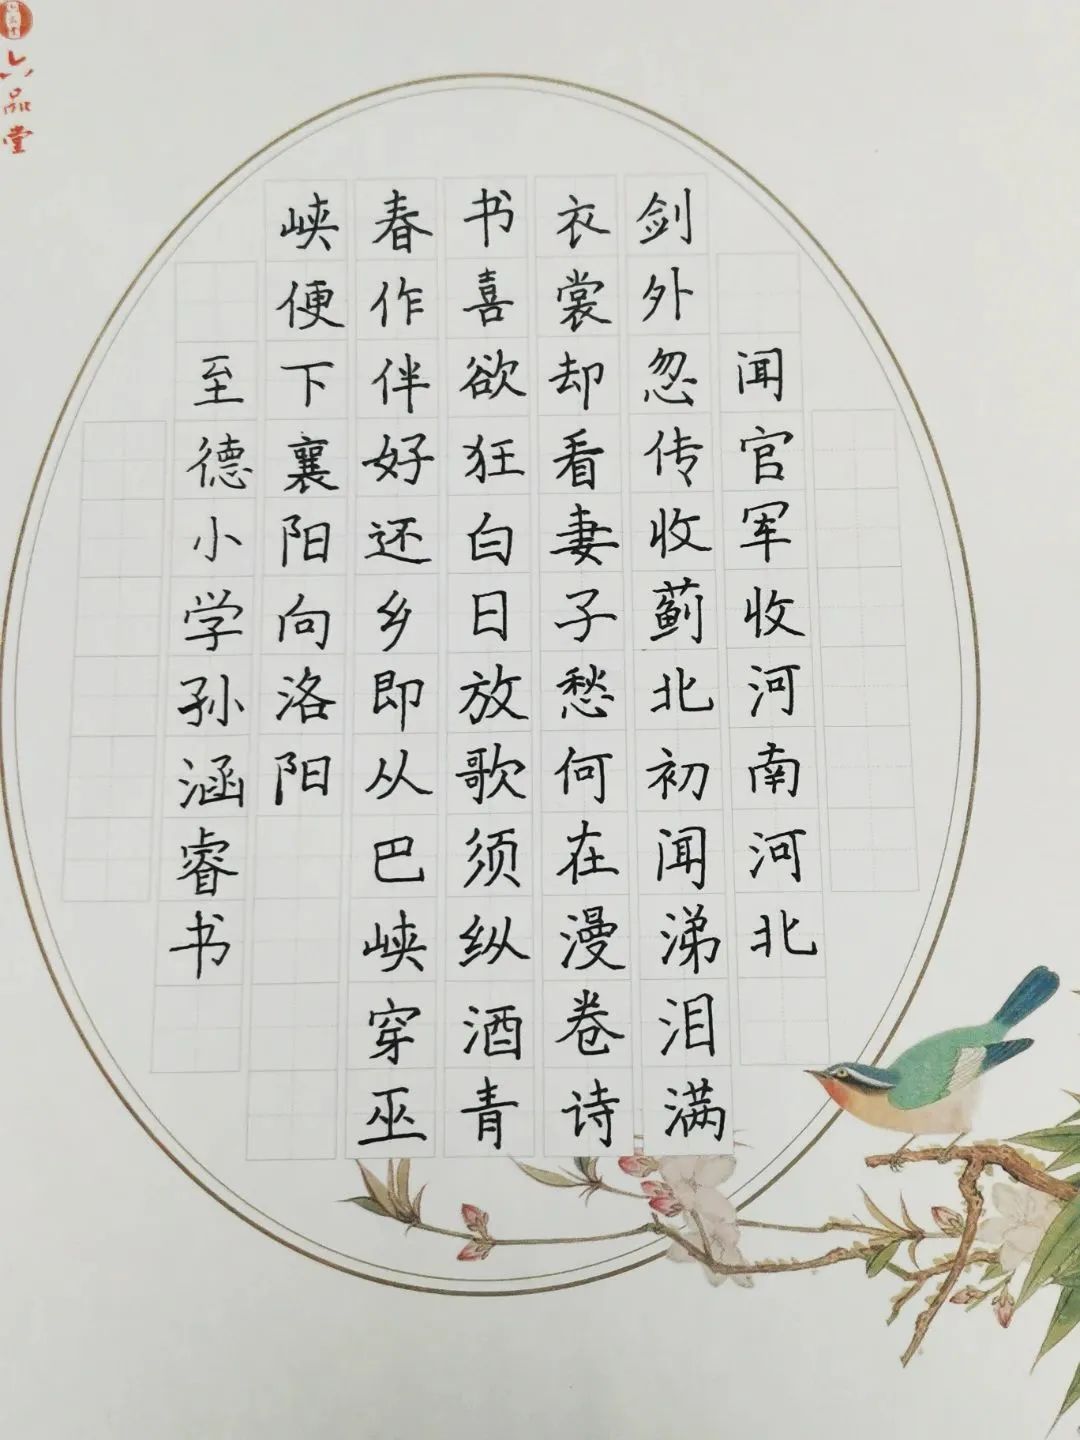 六品堂
闻官军收河南河北
剑外忽传收蓟北初闻涕泪满
衣裳却看妻子愁何在漫卷诗
书喜欲狂白日放歌须纵酒青
春作伴好还乡即从巴峡穿巫
峡便下襄阳向洛阳
至德小学孙涵睿书